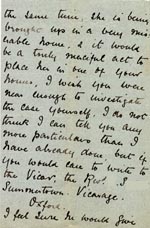 the same time. She is being
brought up in a very mis-
erable home, & it would
be a truly merciful act to
place her in one of your
homes. I wish you were
near enough to investigate
the case yourself. I do not
think I can tell you any
more particulars than I
have already done, but if
you would care to write to
the Vicar, the Rev.
Summertown Vicarage.
Oxford.
I feel sure he would give